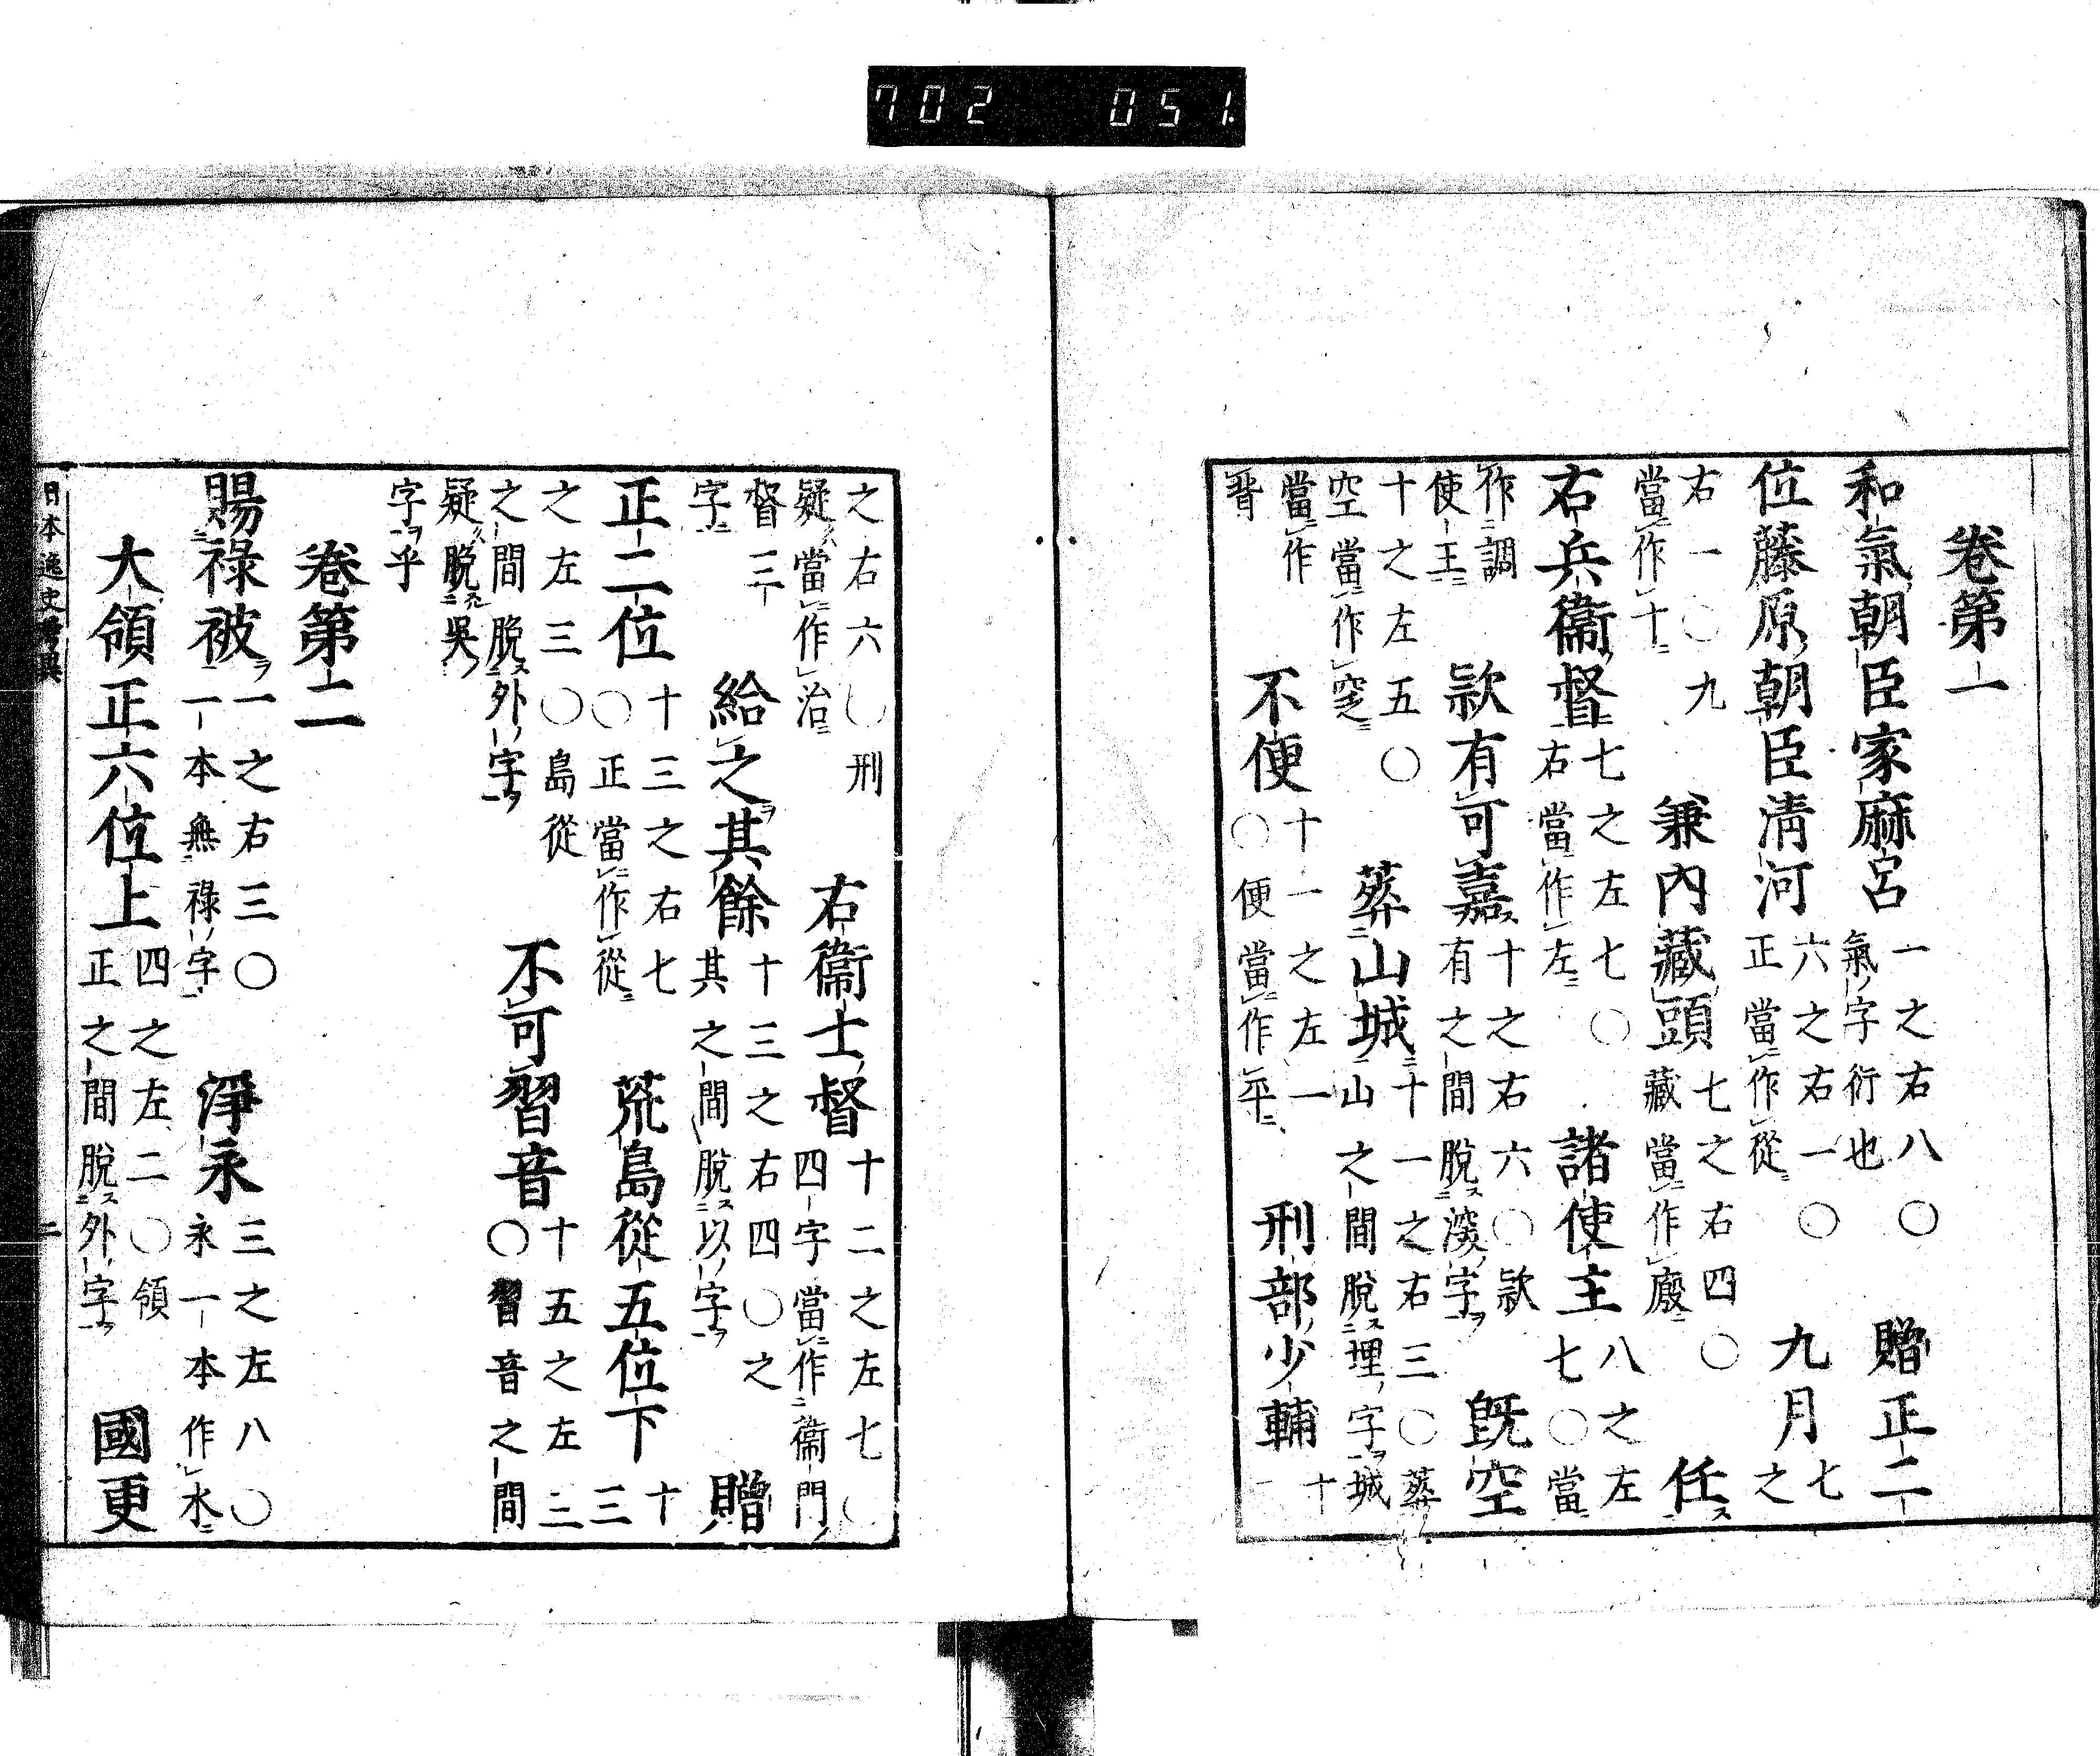 702 051
卷第一
和氣朝臣家麻呂 一之右八〇氣字衍也 贈正二
位藤原朝臣淸河 六之右一〇正當作從 九月 七之
右一〇九當作十 兼內藏頭 七之右四〇藏當作廄 任
右兵衞督 七之左七〇右當作左 諸使主 八之左七〇當
作調使王 款有可嘉 十之右六〇款有之間脫深字 旣空
十之左五〇空當作窆 葬山城 十一之右三〇葬山之間脫埋字城
當作 不便 十一之左一〇便當作平 刑部少輔 十一
之右六〇刑疑當作治 右衞士督 十二之左七〇四字當作衞門
督三字 給之其餘 十三之右四〇之其之間脫以字 贈
正二位 十三之右七〇正當作從 荒島從五位下 十三
之左三〇島從之間脫外字 不可習音 十五之左三〇習音之間
疑脫吳字乎
卷第二
賜祿被 一之右三〇一本無祿字 淨永 三之左八〇永一本作水
大領正六位上 四之左二〇領正之間脫外字 國更
日本逸史考異 二